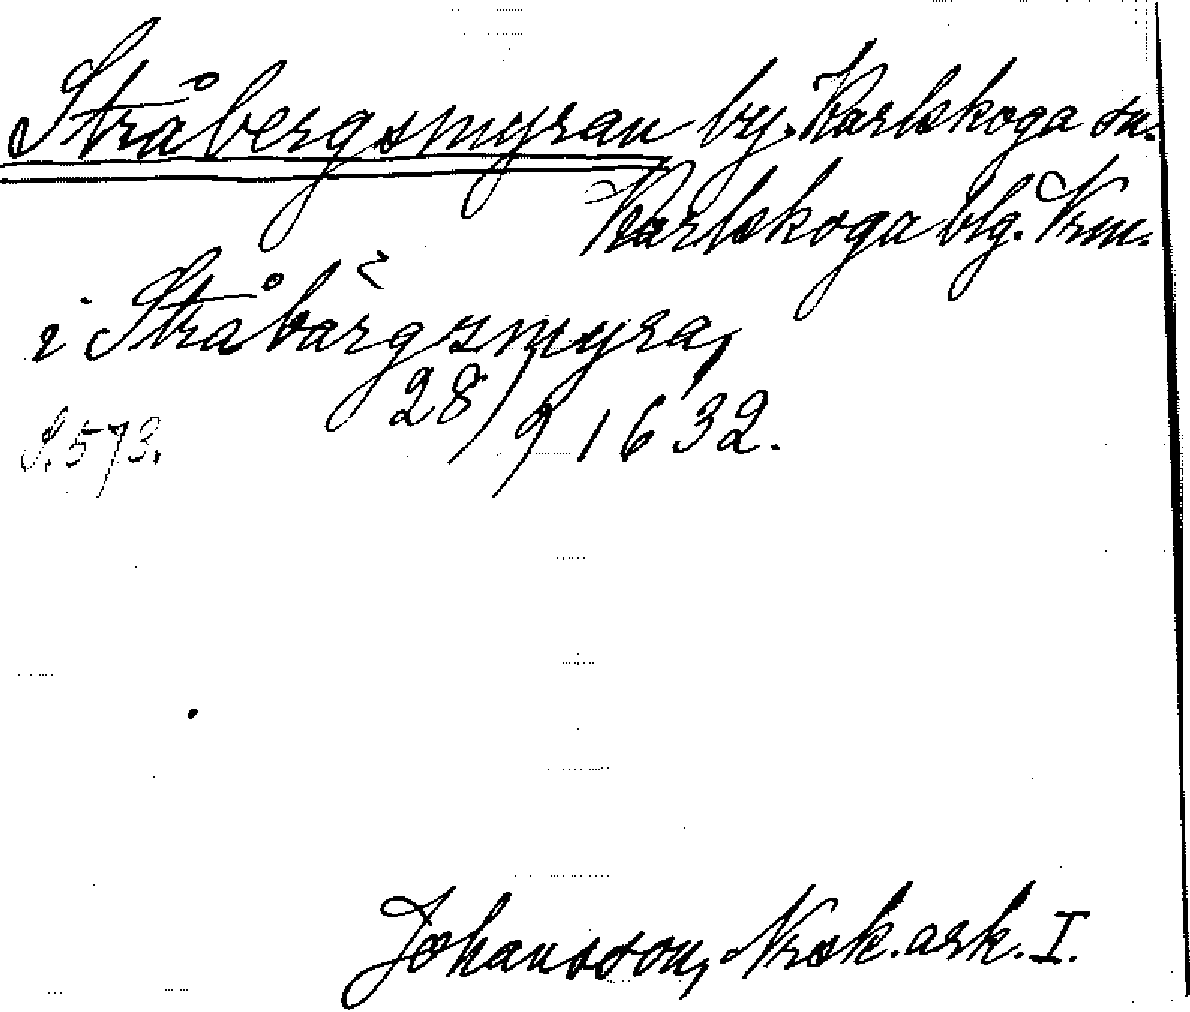 Stråbergsmyran by. Karlskoga sn.
Karlskoga blg. Vrm.
i Stråbärgzmyra,
28/9 1632.
S. 573.
Johansson, Nrsk. ark. I.